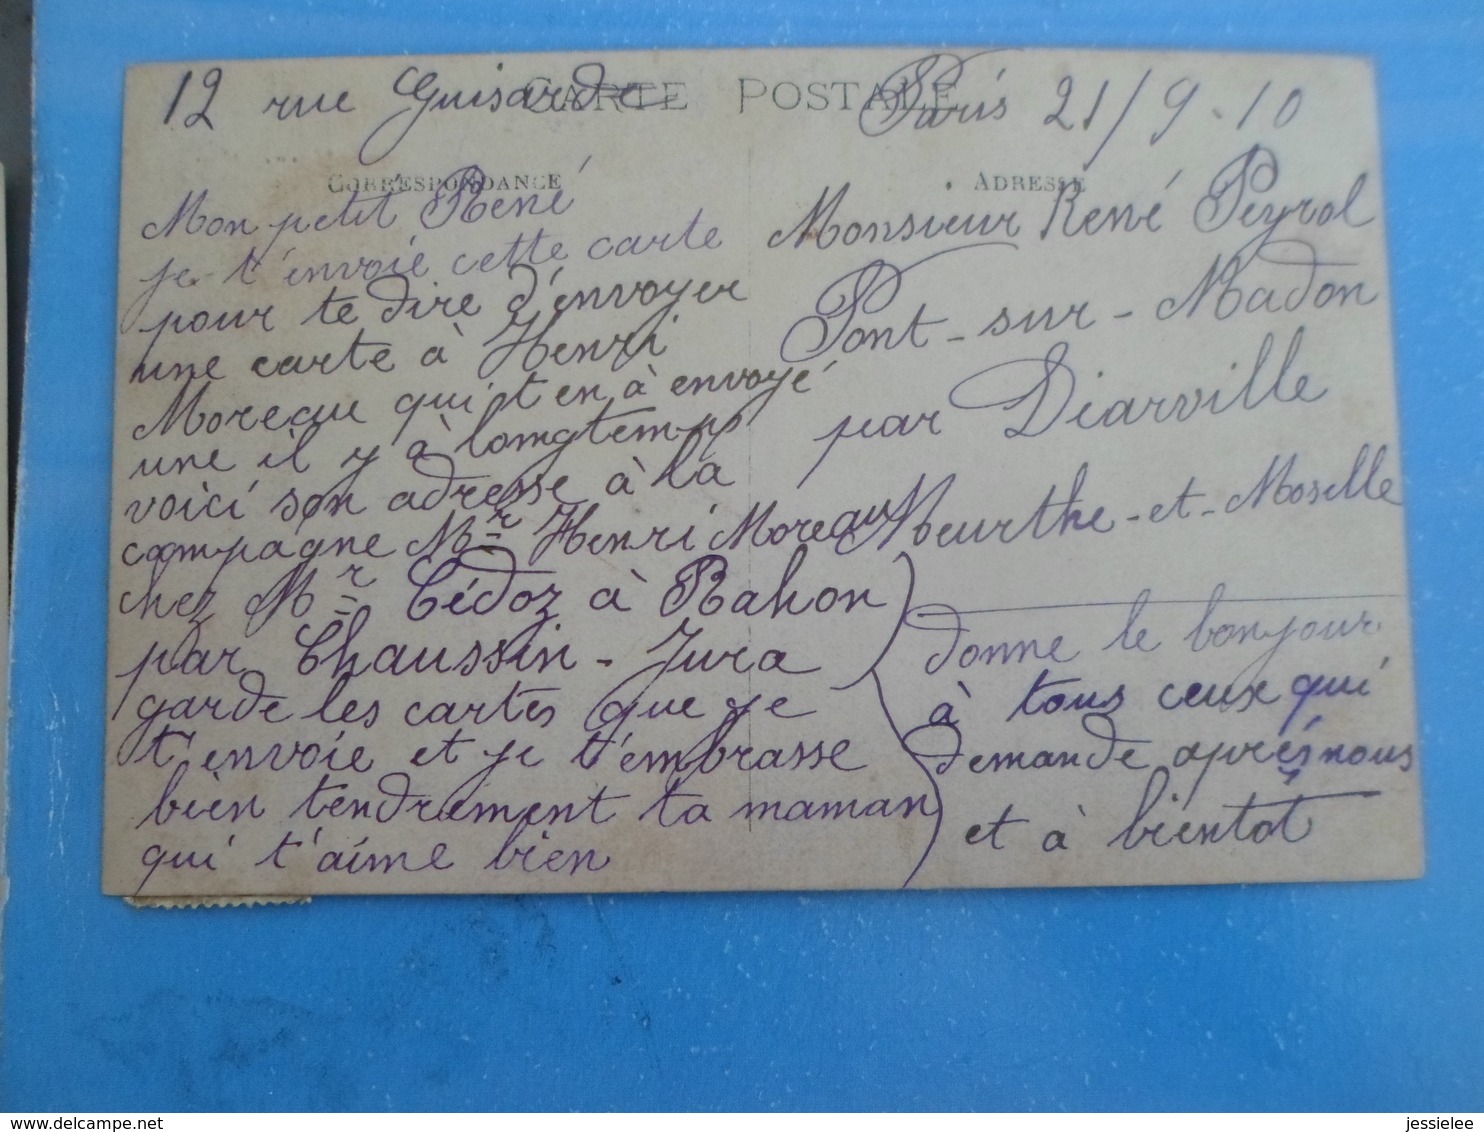 12 rue Guisarde
CARTE POSTALE
Paris 21/9-10
CORRESPONDANCE
Mon petit René
je t'envoie cette carte
pour te dire d'envoyer
une carte à Henri
Moreau qui t'en à envoyé
une il y à longtemp
voici son adresse à la
compagne Mr Henri Moreau
chez Mr Cédoz à Rahon
par Chaussin - Jura
garde les cartes que je
t'envoie et je t'embrasse
bien tendrement ta maman
qui t'aime bien
ADRESSE
Monsieur René Peyrol
Pont-sur-Madon
par Diarville
Meurthe-et-Moselle
donne le bonjour
à tous ceux qui
demande après nous
et à bientot
jessielee